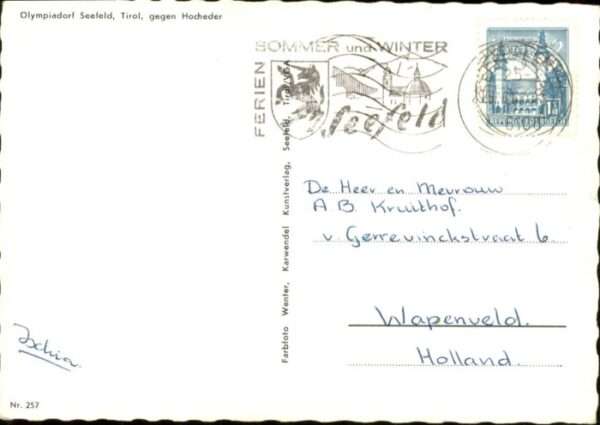 Olympiadorf Seefeld, Tirol, gegen Hocheder
FERIEN
SOMMER und WINTER
Seefeld
6100
De Heer en Mevrouw
A B. Kruithof.
v. Gerrevinckstraat 6.
Wapenveld.
Holland.
Farbfoto Wenter, Karwendel Kunstverlag, Seefeld, Tirol/VDA
Ischia
Nr. 257